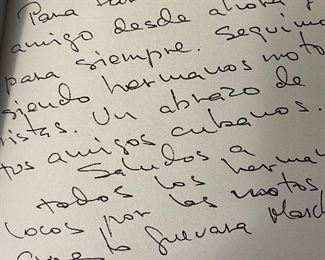 Para
amigo desde ahora y
para siempre. Seguimo
siendo hermanos moto
ristas. Un abrazo de
tus amigos cubanos.
Saludos a
todos los herma
locos por las motos
Guevara March